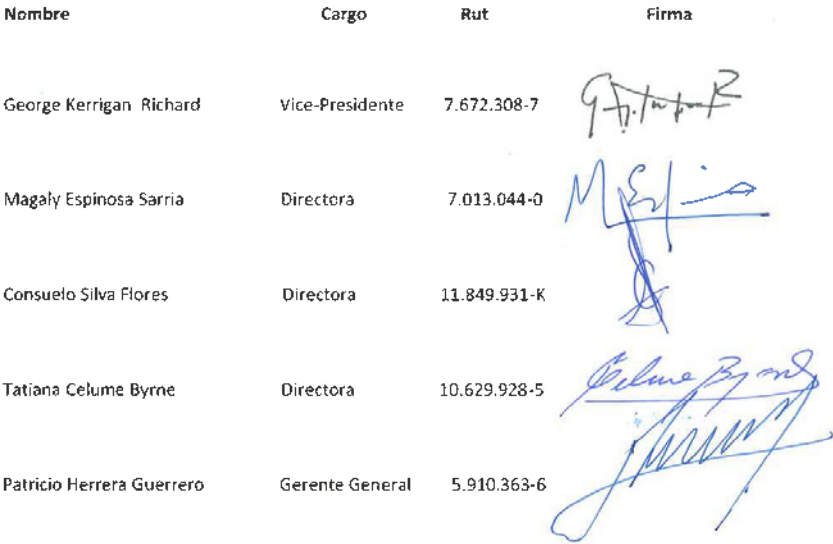 Nombre Cargo Rut Firma
George Kerrigan Richard Vice-Presidente 7.672.308-7
Magaly Espinosa Sarria Directora 7.013.044-0
Consuelo Silva Flores Directora 11.849.931-K
Tatiana Celume Byrne Directora 10.629.928-5 Celume Byrne
Patricio Herrera Guerrero Gerente General 5.910.363-6